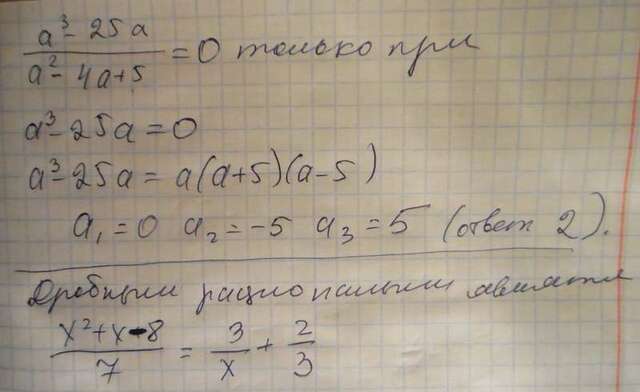 (a³ - 25a)/(a² - 4a + 5) = 0 только при
a³ - 25a = 0
a³ - 25a = a(a+5)(a-5)
a₁ = 0 a₂ = -5 a₃ = 5 (ответ 2).
Дробным рациональным является
(x² + x - 8)/7 = 3/x + 2/3